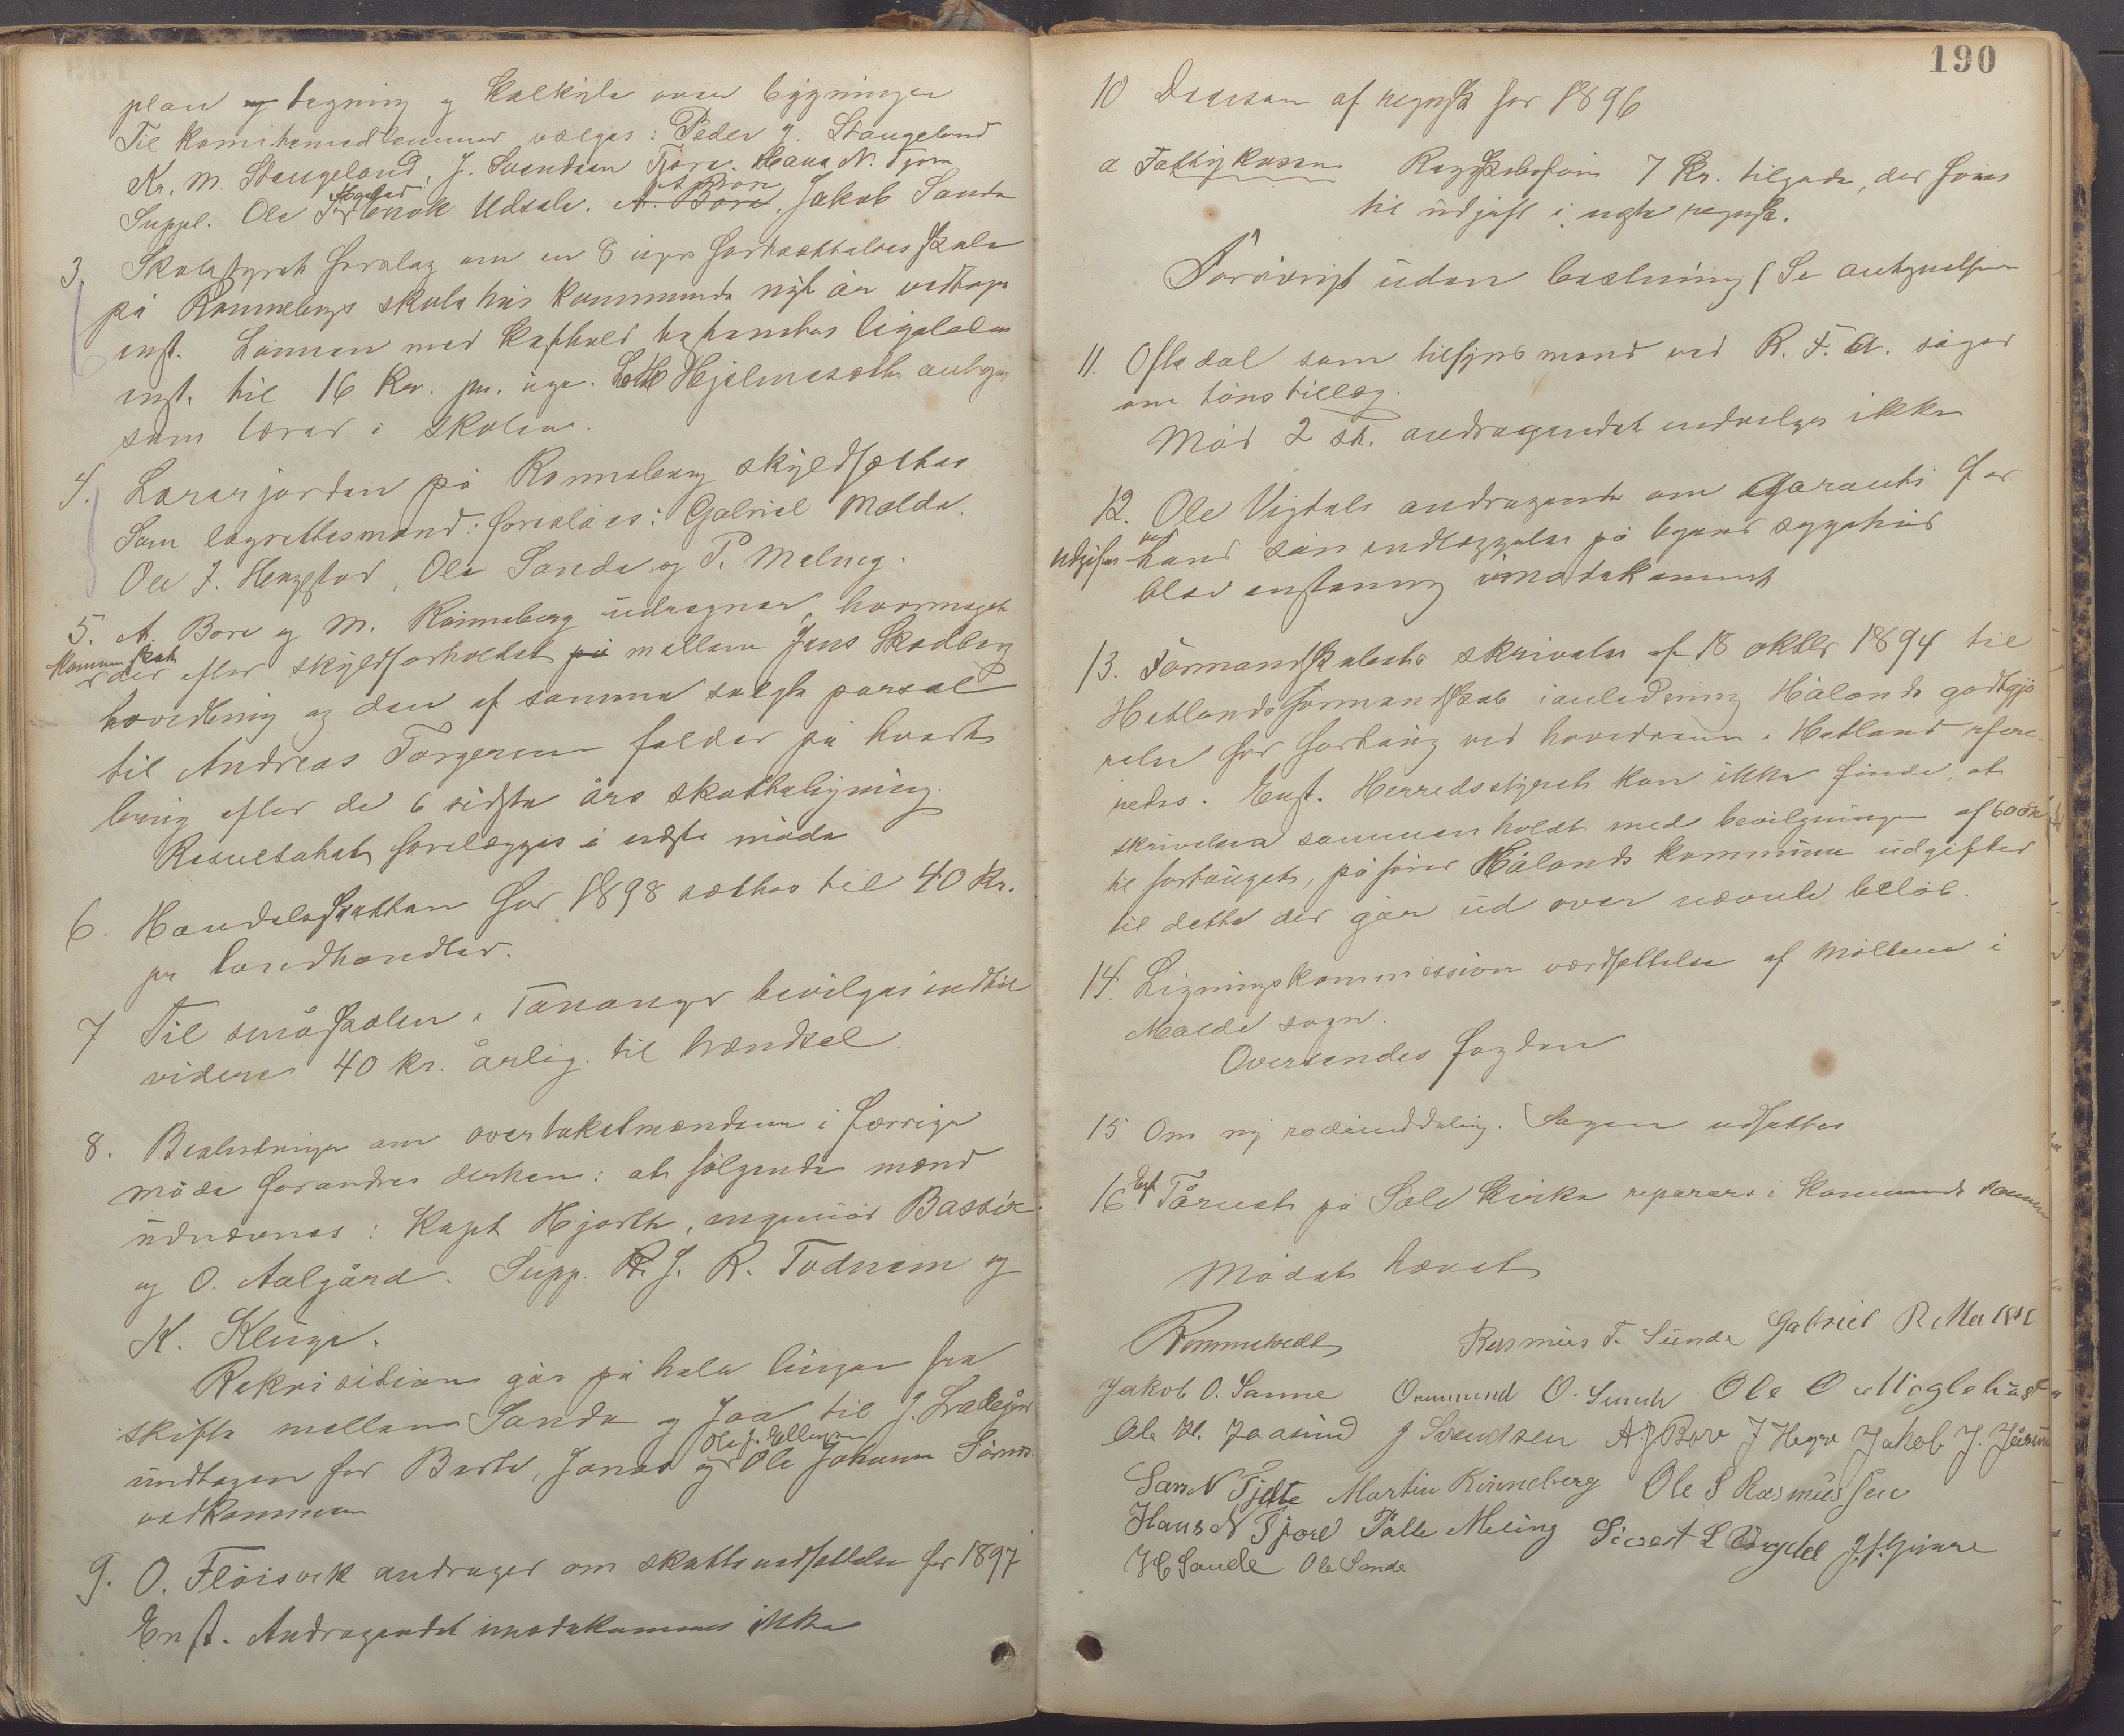 plan og tegning og kalkyle over bygningen
Til komitemedlemmer vælges: Peder G. Stangeland
Kr. M. Stangeland, J. Svendsen Tjora. Hans N. Tjora
Suppl. Ole Enok Udsole. A. Bore, Jakob Sande
3. Skolestyrets forslag om en 8 ugers fortsættelsesskole
på Rønnebergs skolehus kommende nyt år vedtages
enst. Lønnen med kosthold bestemtes ligeledes
enst. til 16 Kr. pr. uge. Hjelmeseth antages
som lærer i skolen.
4. Lærerjorden på Rønneberg skyldsættes
Som lagrettesmænd foreslåes: Gabriel Malde.
Ole J. Hengstad, Ole Sande og P. Meling.
5. A. Bore og M. Rønneberg udregner, hvormeget
kommuneskat
der efter skyldforholdet på mellem Jens Skadberg
hovedbrug og den af samme solgte parsel
til Andreas Torgersen falder på hvert
brug efter de 6 sidste års skatteligning.
Resultatet forelægges i næste møde
6. Handelsskatten for 1898 sættes til 40 Kr.
pr landhandler.
7 Til småskolen i Tananger bevilges indtil
videre 40 kr. årlig til brændsel.
8. Beslutningen om overtakstmændene i forrige
møde forandres derhen: at følgende mænd
udnævnes: Kapt Hjorth, ingeniør Bassøe
og O. Aalgård. Supp. J. R. Todnem og
K. Kluge.
Rekvisition går på hele linjen fra
skifte mellem Sande og Joa til J.
Ole J. Ellingsen
undtagen for Berte, Jonas og Ole Johann Sømme
vedkommen
9. O. Fløisvik andrager om skattenedsettelse for 1897
Enst. Andragendet imødekommes ikke
190
10 Decision af regnsk for 1896
a Fattigkassen Regnskabsfører 7 Kr. tilgode, der føres
til udgift i næste regnsk.
Forøvrigt uden beslutning (Se antegnelsen
11. Oftedal som tilsynsmand ved R. F. A. søger
om lønstillæg.
Mod 2 st. andragendet indvilges ikke
12. Ole Vigdals andragende om Garanti for
udgifter ved hans søns indlæggelse på byens sygehus
blev enstemmig imødekommet
13. Formandskabets skrivelse af 18 oktbr 1894 til
Hetlands formandskab i anledning Hålands godtgjø
relse for fortaug ved hovedveien i Hetland refere-
redes. Enst. Herredsstyret kan ikke finde, at
skrivelsen sammenholdt med bevilgningen af 600 kr
til fortauget, påfører Hålands kommune udgifter
til dette der går ud over nævnte beløb.
14. Ligningskommission værdsettelse af Møllene i
Malde sogn.
Oversendes fogden
15 Om ny rodeinddeling. Sagen udsettes
16 Enst. Tårnet på Sole kirke repareres i kommende sommer
Mødet hævet
Rommetvedt Rasmus T. Sunde Gabriel R Malde
Jakob O. Sømme Ommund O. Sunde Ole O Myglebust
Ole Kl. Joasund J Svendsen A J. Bore J Hagen Jakob J. Jåsund
Lars N Tjelta Martin Rønneberg Ole S Rasmussen
Hans N Tjore Tølle Meling Sivert L Vigdel
H Sande Ole Sande